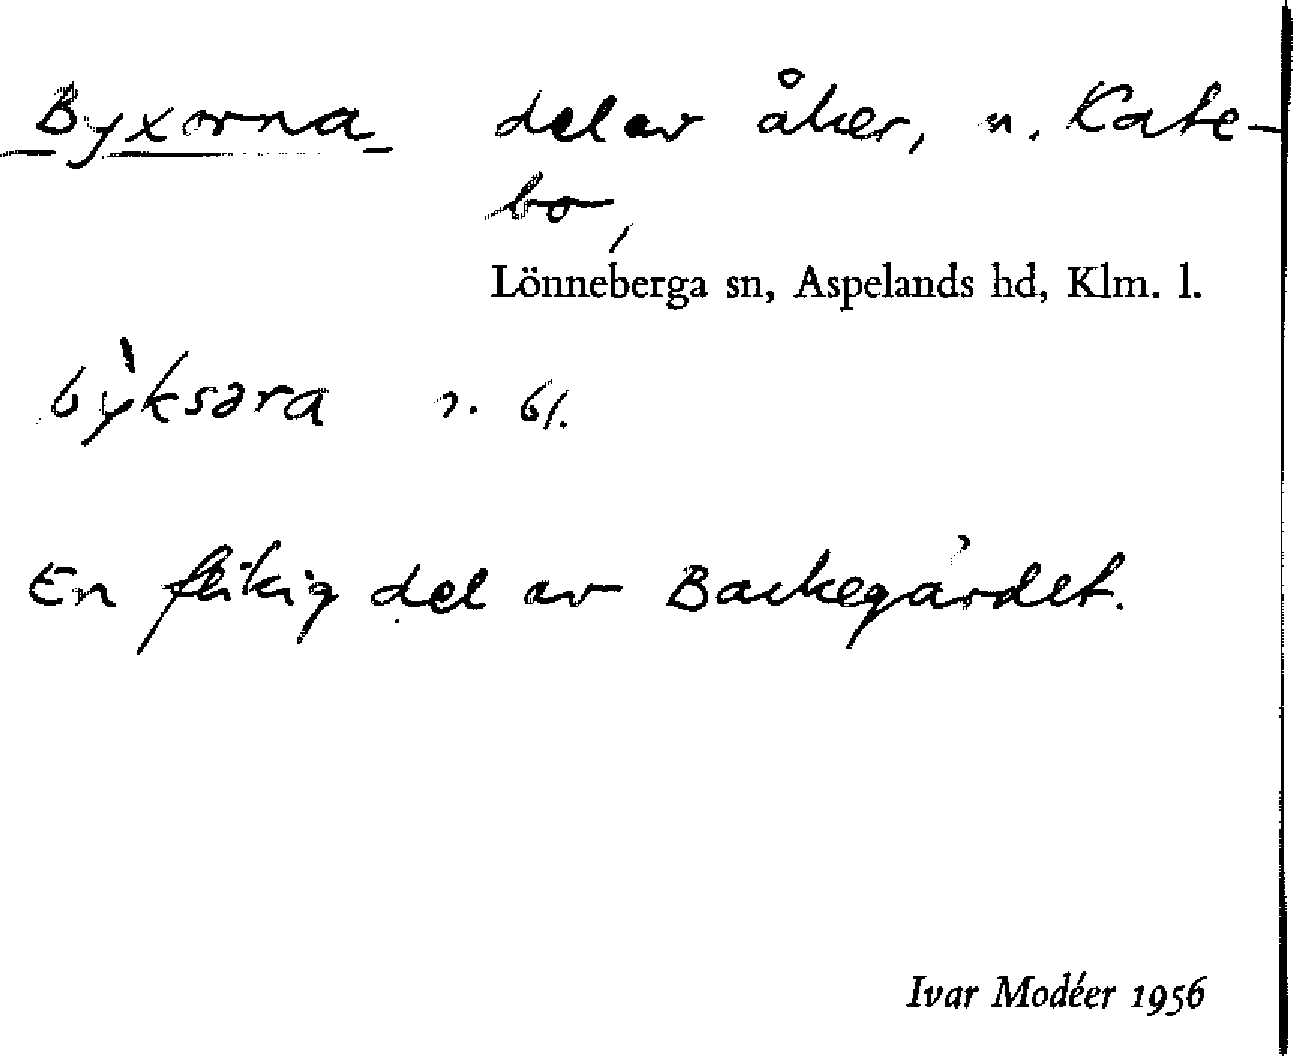 Byxorna del av åker, n. Kate-
bo,
Lönneberga sn, Aspelands hd, Klm. l.
bỳksəra 2. 61.
En flikig del av Backegärdet.
Ivar Modéer 1956